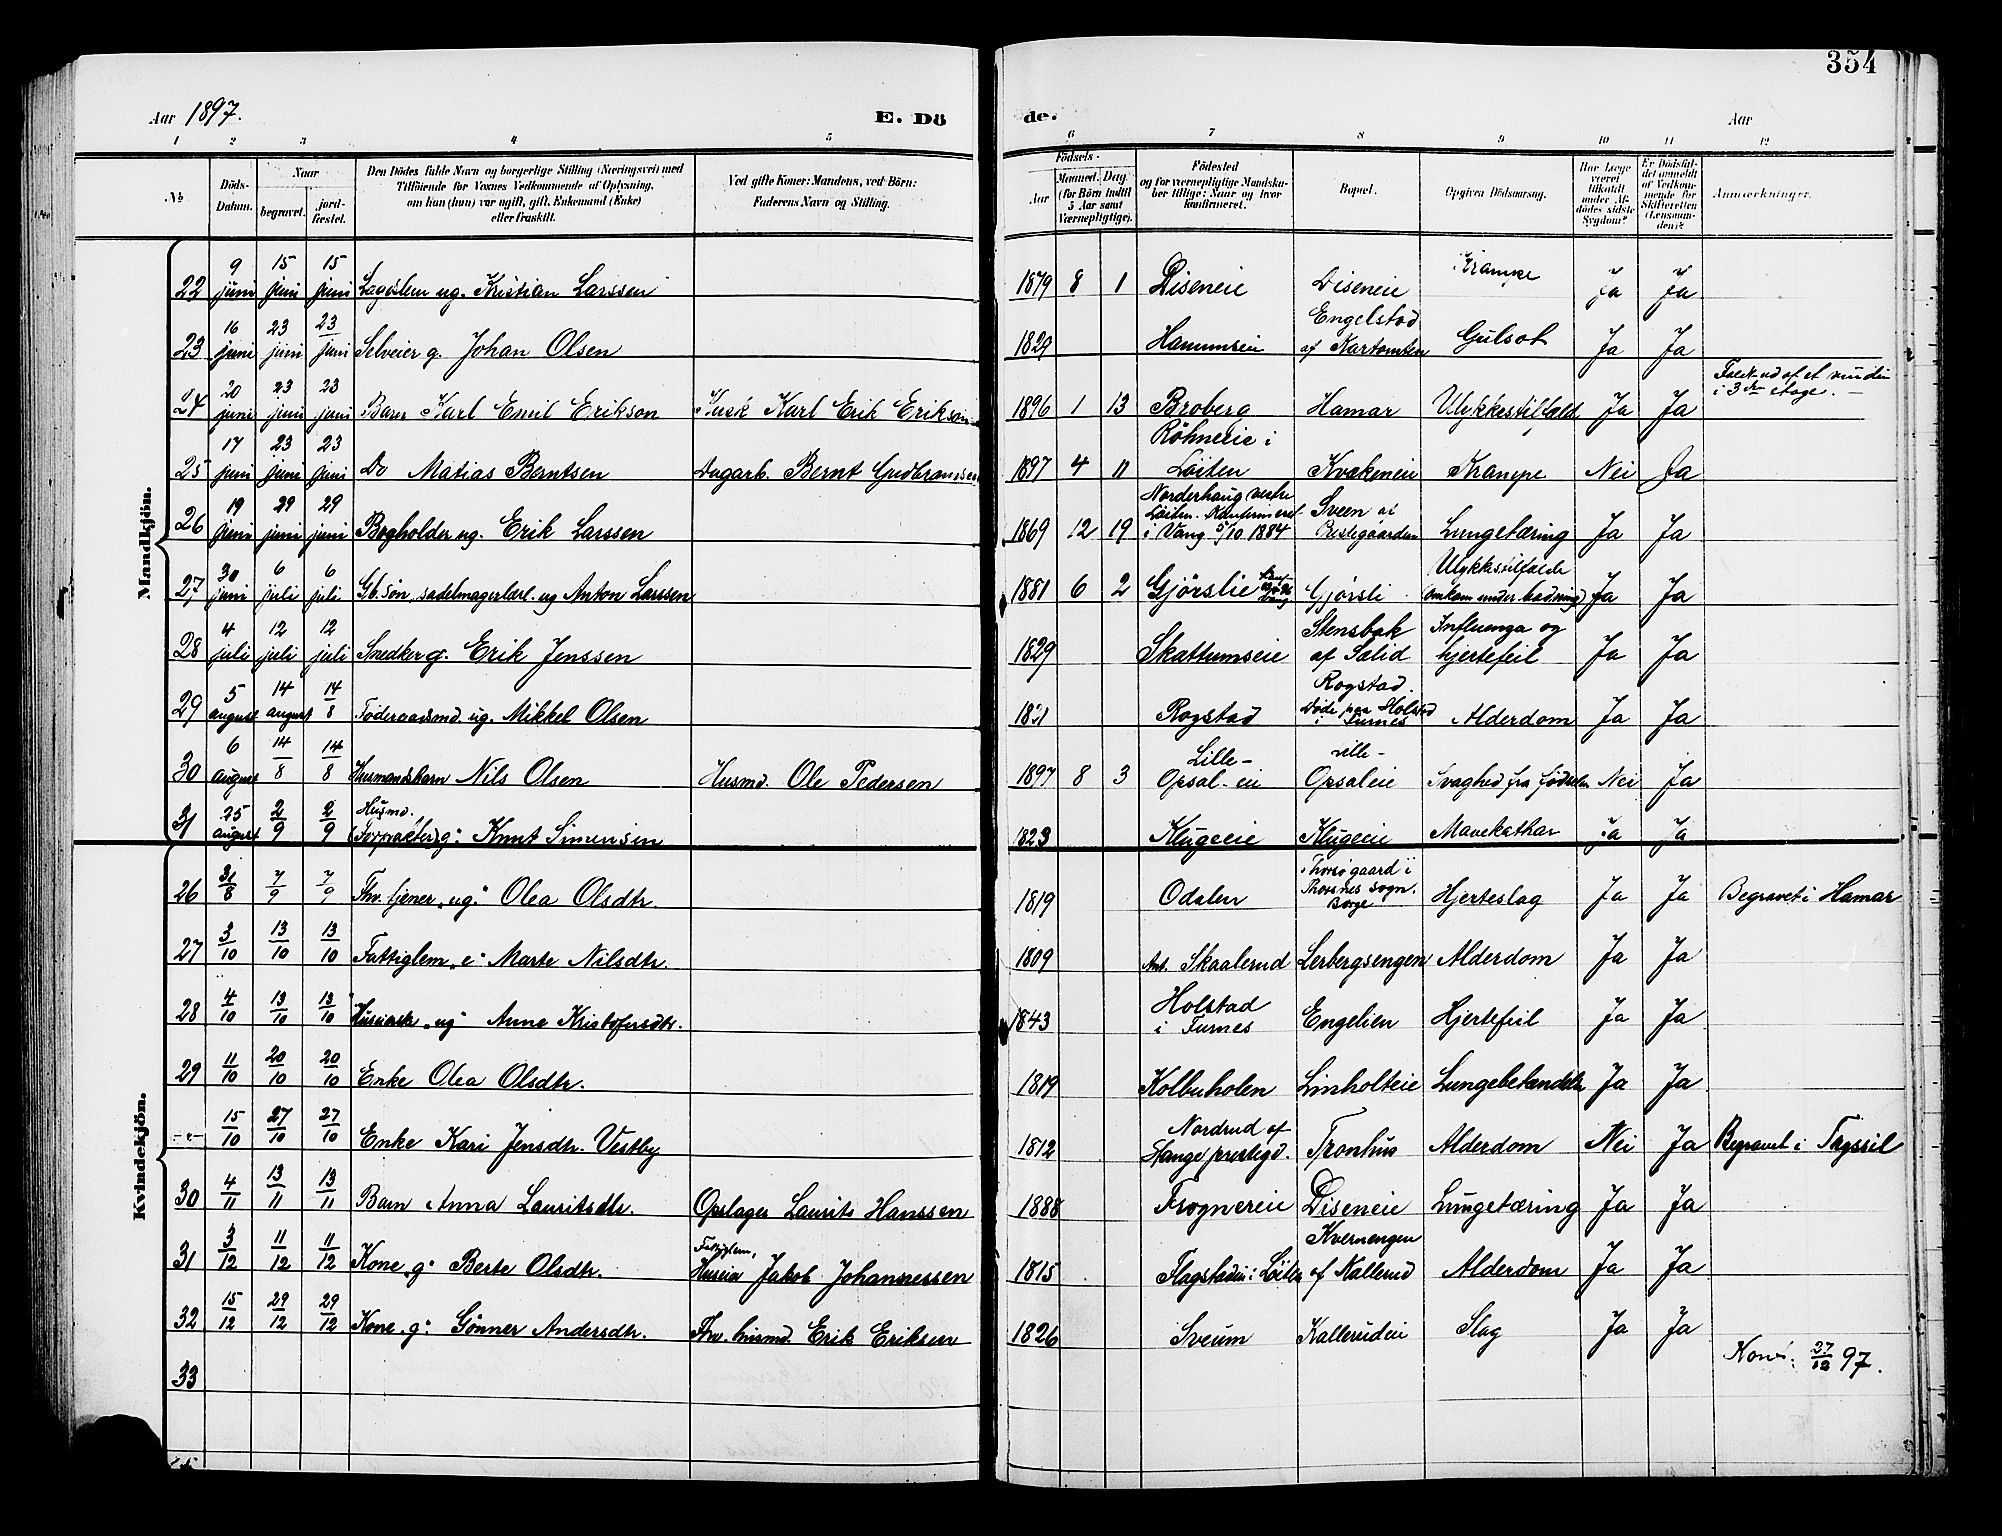 354
Aar 1897.
E. Dö
de.
Aar
1 2 3 4 5 6 7 8 9 10 11 12
№
Döds-Datum.
Naar
begravet.
jord-fæstet.
Den Dödes fulde Navn og borgerlige Stilling (Næringsvei) med
Tilföiende for Voxnes Vedkommende af Oplysning,
om han (hun) var ugift, gift, Enkemand (Enke)
eller fraskilt.
Ved gifte Koner: Mandens, ved Börn:
Faderens Navn og Stilling.
Födsels-
Aar
Maaned. Dag
(for Börn indtil
5 Aar samt
Værnepligtige).
Födested
og for værnepligtige Mandsku-
ber tillige: Naar og hvor
konfirmeret.
Bopæl.
Opgiven Dödsaarsag.
Har Læge
været
tilkaldt
under Af-
dödes sidste
Sygdom?
Er Dödsfal-
det anmeldt
af Vedkom-
mende for
Skifteretten
(Lensman-
den)?
Anmærkninger.
Mandkjön.
22 9 juni 15 juni 15 juni Lægdslem ug. Kristian Larssen 1879 8 1 Diseneie Diseneie Krampe Ja Ja
23 16 juni 23 juni 23 juni Selveier g. Johan Olsen 1829 Hamumseie Engelstad af Kartomten Gulsot Ja Ja
24 20 juni 23 juni 23 juni Barn Karl Emil Erikson Kusk Karl Erik Erikson 1896 1 13 Broberg Hamar Ulykkestilfæld Ja Ja Faldt ud af et vindu i 3die etage. —
25 17 juni 23 juni 23 juni Do Matias Berntsen Dagarb. Bernt Gudbrandsen 1897 4 11 Röhneeie i Löiten Kvækeneie Krampe Nei Ja
26 19 juni 29 juni 29 juni Bogholder ug. Erik Larssen 1869 12 19 Norderhaug vestre Löiten. Konfirmeret i Vang 5/10 1884 Sveen ei Prestegaarden Lungetæring Ja Ja
27 30 juni 6 juli 6 juli Gb.sön, sadelmagerlærl. ug Anton Larssen 1881 6 2 Gjörslie Gjörsli Ulykkestilfælde omkom under badning Ja Ja
28 4 juli 12 juli 12 juli Snedker g. Erik Jenssen 1829 Skattumseie Stensbak af Salid Influenza og hjertefeil Ja Ja
29 5 august 14 august 14/8 Föderaadsmd ug. Mikkel Olsen Rogstad Rogstad. Döde paa Holstad i Furnes Alderdom Ja Ja
30 6 august 14/8 14/8 Husmandsbarn Nils Olsen Husmd. Ole Pedersen 1897 8 3 Lille-Opsal-eie Lille-Opsaleie Svaghed fra födselen Nei Ja
31 25 august 2/9 2/9 Husmd. (Forpakter) g: Knut Simensen 1823 Klugeeie Klugeeie Mavekathar Ja Ja
Kvindekjön.
26 31/8 7/9 7/9 Fhv. tjener „ug“ Olea Olsdtr. 1819 Odalen Thorsögaard i Thorsnes sogn. Borge Hjerteslag Ja Ja Begravet i Hamar
27 3/10 13/10 13/10 Fattiglem „e“ Marte Nilsdtr. 1809 Ant. Skaalerud Lerbergsengen Alderdom Ja Ja
28 4/10 13/10 13/10 Huseierske „ug“ Anne Kristofersdtr. 1843 Holstad i Furnes Engelien Hjertefeil Ja Ja
29 11/10 20/10 20/10 Enke Olea Olsdtr. 1819 Kolbuholen Linholteie Lungebetændelse Ja Ja
-"- 15/10 27/10 27/10 Enke Kari Jensdtr. Vestby 1812 Nordrud af Stange prestegd. Tronhus Alderdom Nei Ja Begravet i Tryssil
30 4/11 13/11 13/11 Barn Anna Lauritsdtr. Opslager Laurits Hanssen 1888 Frognereie Diseneie Lungetæring Ja Ja
31 3/12 11/12 11/12 Kone „g“ Berte Olsdtr. Fattiglem, Huseier Jakob Johannessen 1815 Flagstadeie: Löiten Kvernengen af Kallerud Alderdom Ja Ja
32 15/12 29/12 29/12 Kone „g“. Gönner Andersdtr. Fhv. husmd. Erik Eriksen 1826 Sveum Kallerudeie Slag Ja Ja
33
Konf: 27/12 97.